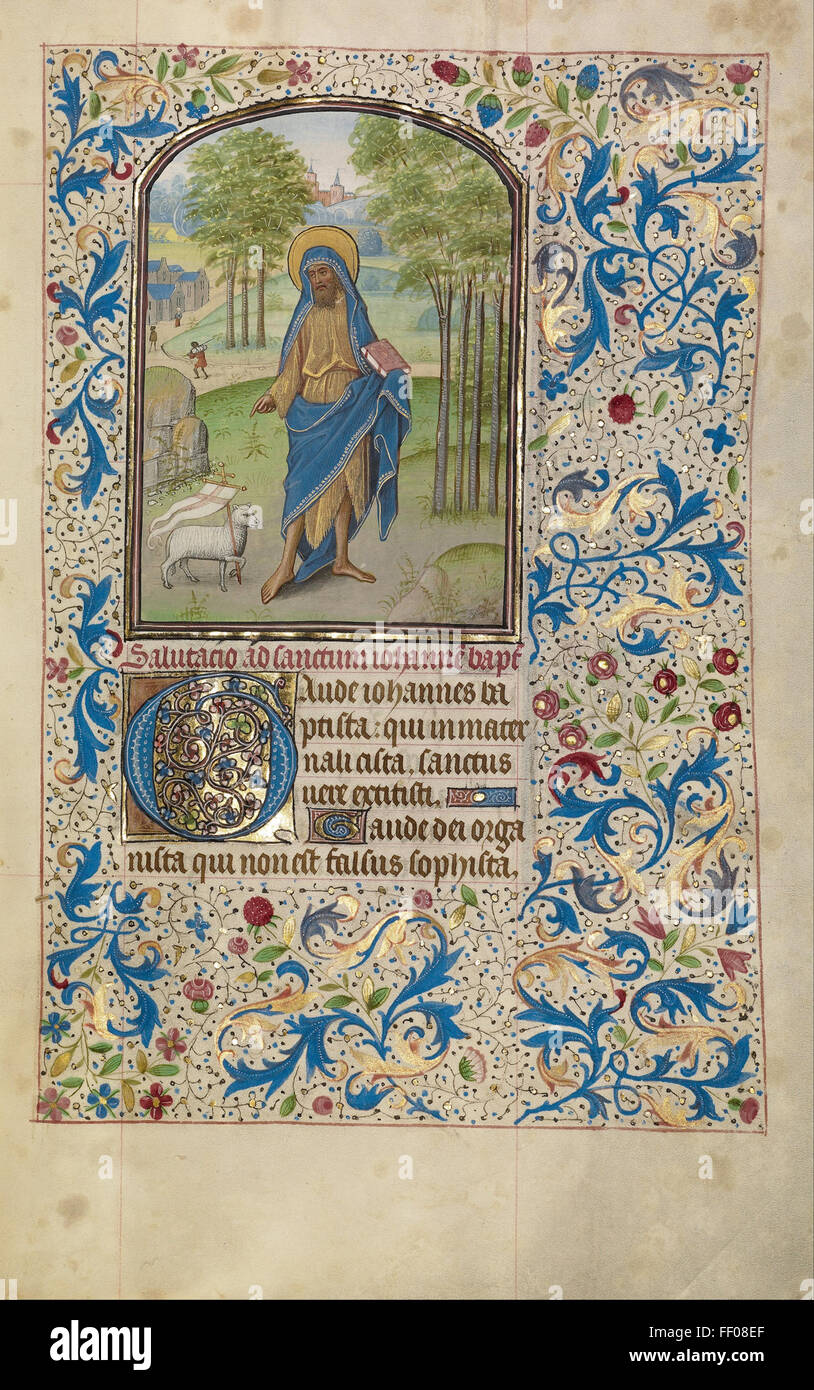 Salutacio ad sanctum iohannē bapt̄
Gaude iohannes ba
ptista: qui in mater
nali cista, sanctus
uere extitisti,
Gaude dei orga
nista qui non est falsus sophista,
alamy stock photo
FF08EF
www.alamy.com